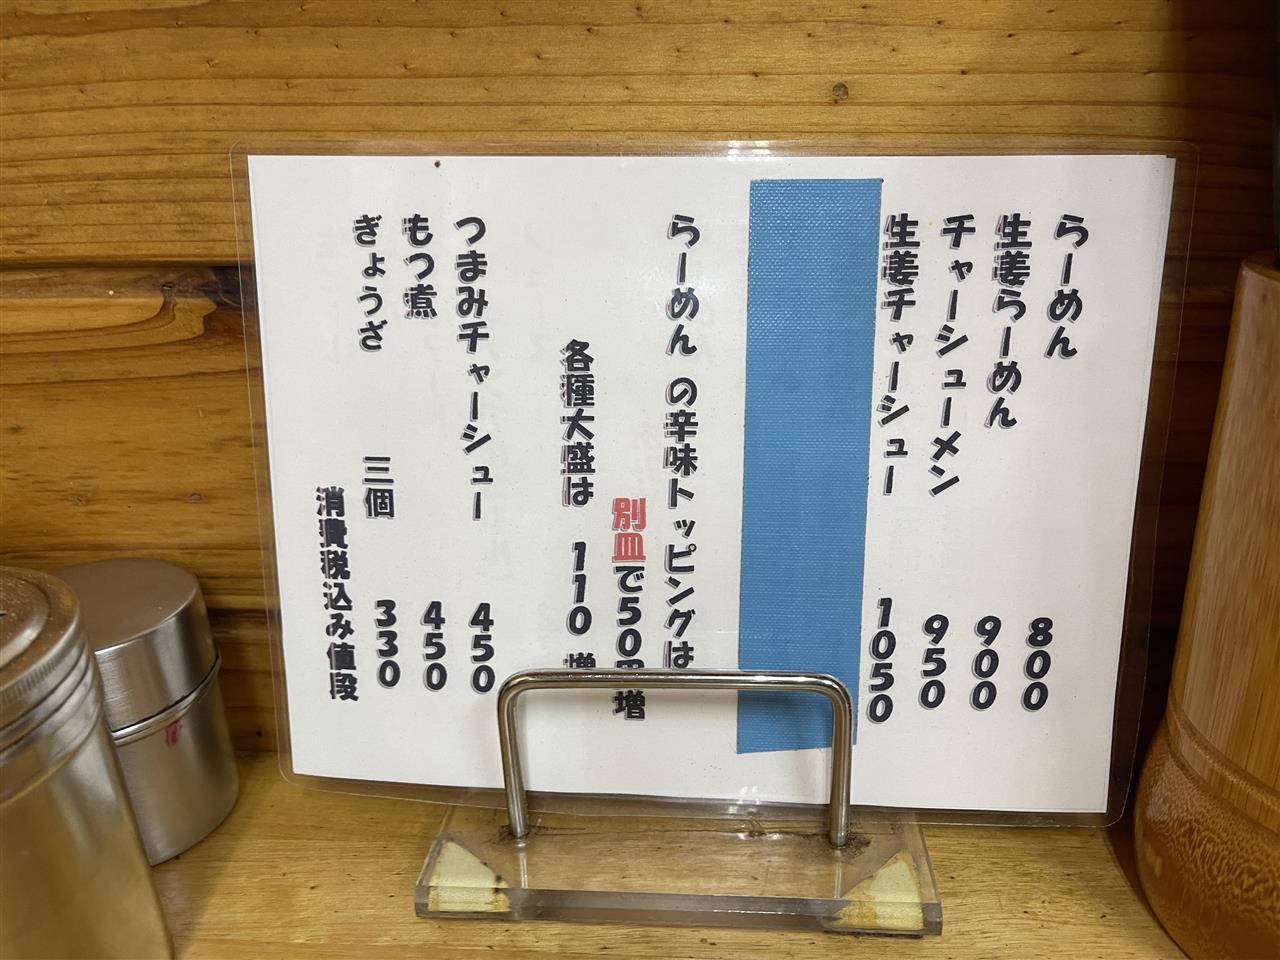 らーめん 800
生姜らーめん 900
チャーシューメン 950
生姜チャーシュー 1050
らーめん の辛味トッピングは
別皿で50円増
各種大盛は 110 増
つまみチャーシュー 450
もつ煮 450
ぎょうざ 三個 330
消費税込み値段